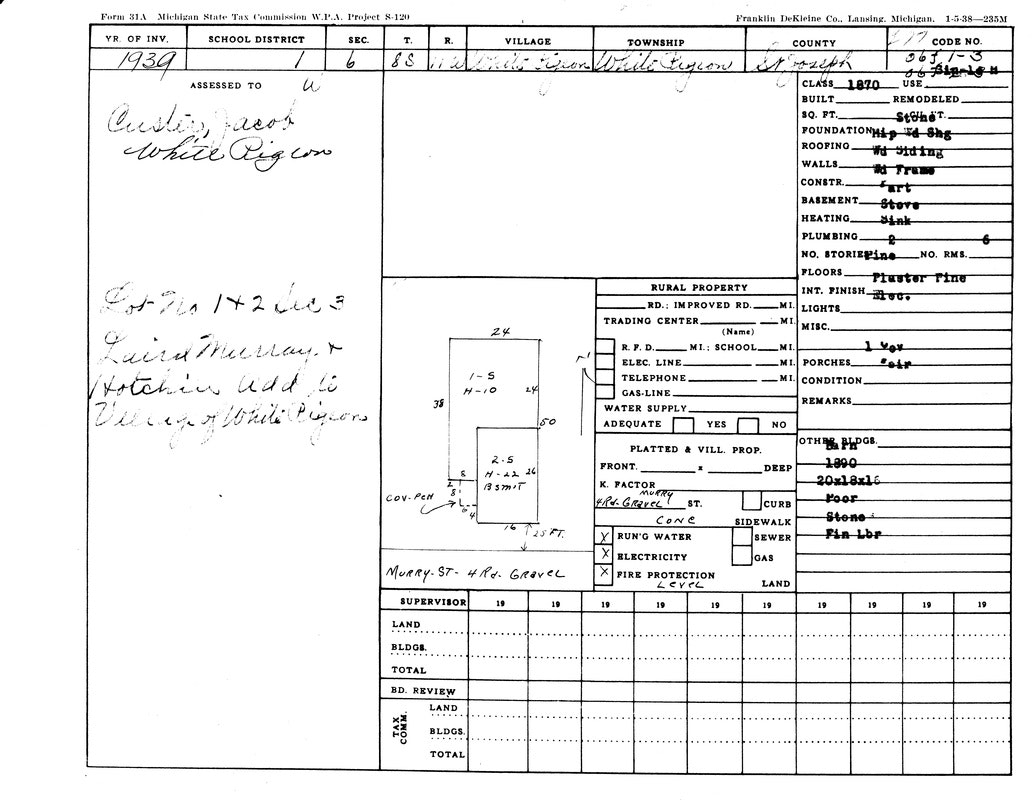 Form 31A Michigan State Tax Commission W.P.A. Project S-120
Franklin DeKleine Co., Lansing, Michigan. 1-5-38—235M
YR. OF INV. SCHOOL DISTRICT SEC. T. R. VILLAGE TOWNSHIP COUNTY CODE NO.
1939 1 6 8S White Pigeon White Pigeon St Joseph 1-3
ASSESSED TO W
Custer, Jacob
White Pigeon
Lot No 1+2 Sec 3
Laird Murray &
Hotchin Add to
Village of White Pigeon
Single
CLASS 1870 USE
BUILT REMODELED
SQ. FT. CU. FT.
Stone
FOUNDATION Hip Wd Shg
ROOFING Wd Siding
WALLS Wd Frame
CONSTR. Part
BASEMENT Stove
HEATING Sink
PLUMBING 2 6
NO. STORIES Pine NO. RMS.
FLOORS Plaster Pine
INT. FINISH Elec.
LIGHTS
MISC.
1 Cov
PORCHES Fair
CONDITION
REMARKS
OTHER BLDGS.
Barn
1890
20x18x16
Poor
Stone
Fin Lbr
24
1-5
H-10
24
38
50
2-5
H-22 26
BSMIT
8
2
8
6
4
COV-PCH
16
25 FT.
N
MURRY-ST- 4 Rd. GRAVEL
RURAL PROPERTY
RD.; IMPROVED RD. MI.
TRADING CENTER MI.
(Name)
R. F. D. MI.; SCHOOL MI.
ELEC. LINE MI.
TELEPHONE MI.
GAS-LINE
WATER SUPPLY
ADEQUATE YES NO
PLATTED & VILL. PROP.
FRONT. x DEEP
K. FACTOR
MURRY
4 Rd. GRAVEL ST. CURB
CONC SIDEWALK
X RUN'G WATER SEWER
X ELECTRICITY GAS
X FIRE PROTECTION
LEVEL LAND
SUPERVISOR 19 19 19 19 19 19 19 19 19 19
LAND
BLDGS.
TOTAL
BD. REVIEW
TAX COMM.
LAND
BLDGS.
TOTAL